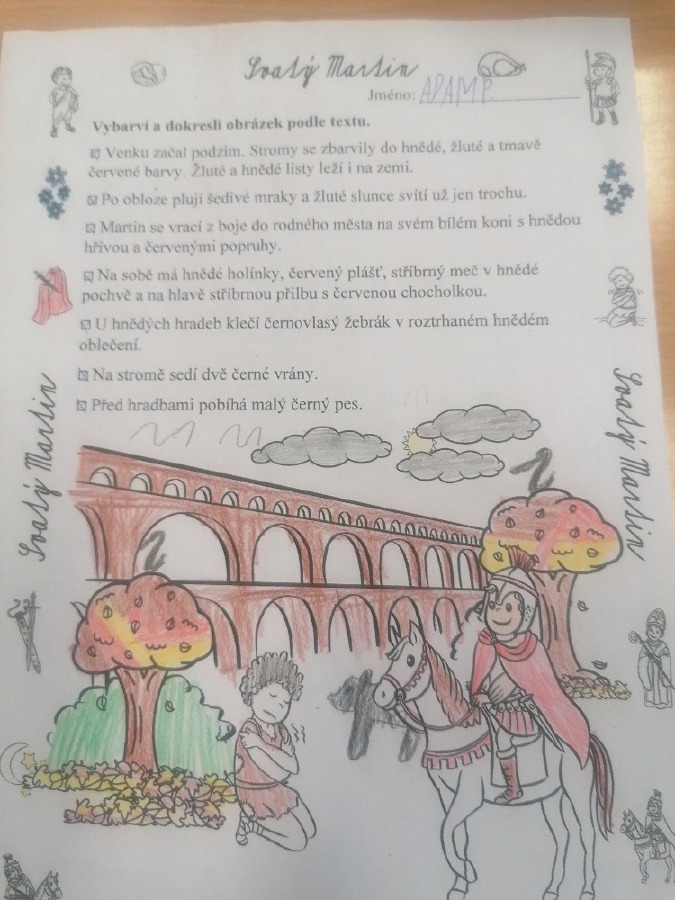 Svatý Martin
Jméno: ADAM P.
Vybarvi a dokresli obrázek podle textu.
Venku začal podzim. Stromy se zbarvily do hnědé, žluté a tmavě
červené barvy. Žluté a hnědé listy leží i na zemi.
Po obloze plují šedivé mraky a žluté slunce svítí už jen trochu.
Martin se vrací z boje do rodného města na svém bílém koni s hnědou
hřívou a červenými popruhy.
Na sobě má hnědé holínky, červený plášť, stříbrný meč v hnědé
pochvě a na hlavě stříbrnou přilbu s červenou chocholkou.
U hnědých hradeb klečí černovlasý žebrák v roztrhaném hnědém
oblečení.
Na stromě sedí dvě černé vrány.
Před hradbami pobíhá malý černý pes.
Svatý Martin
Svatý Martin